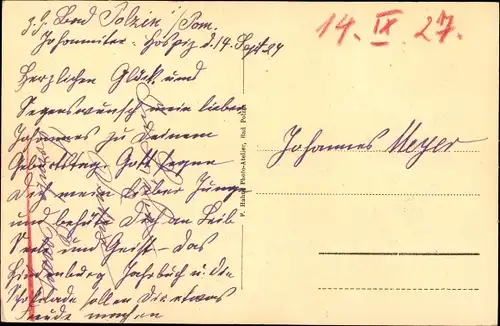 z. Z. Bad Polzin i/Pom.
Johanniter-Hospiz d. 14. Sept. 27
Herzlichen Glück und
Segenswunsch mein lieber
Johannes zu Deinem
Geburtstag. Gott segne
Dich mein lieber Junge
und behüte Dich an Leib
Seele und Geist - Das
Hindenburg Jahrbuch u. die
Schokolade sollen Dir etwas
Freude machen
14. IX 27.
Johannes Meyer
Photo-Atelier, Bad Polzin